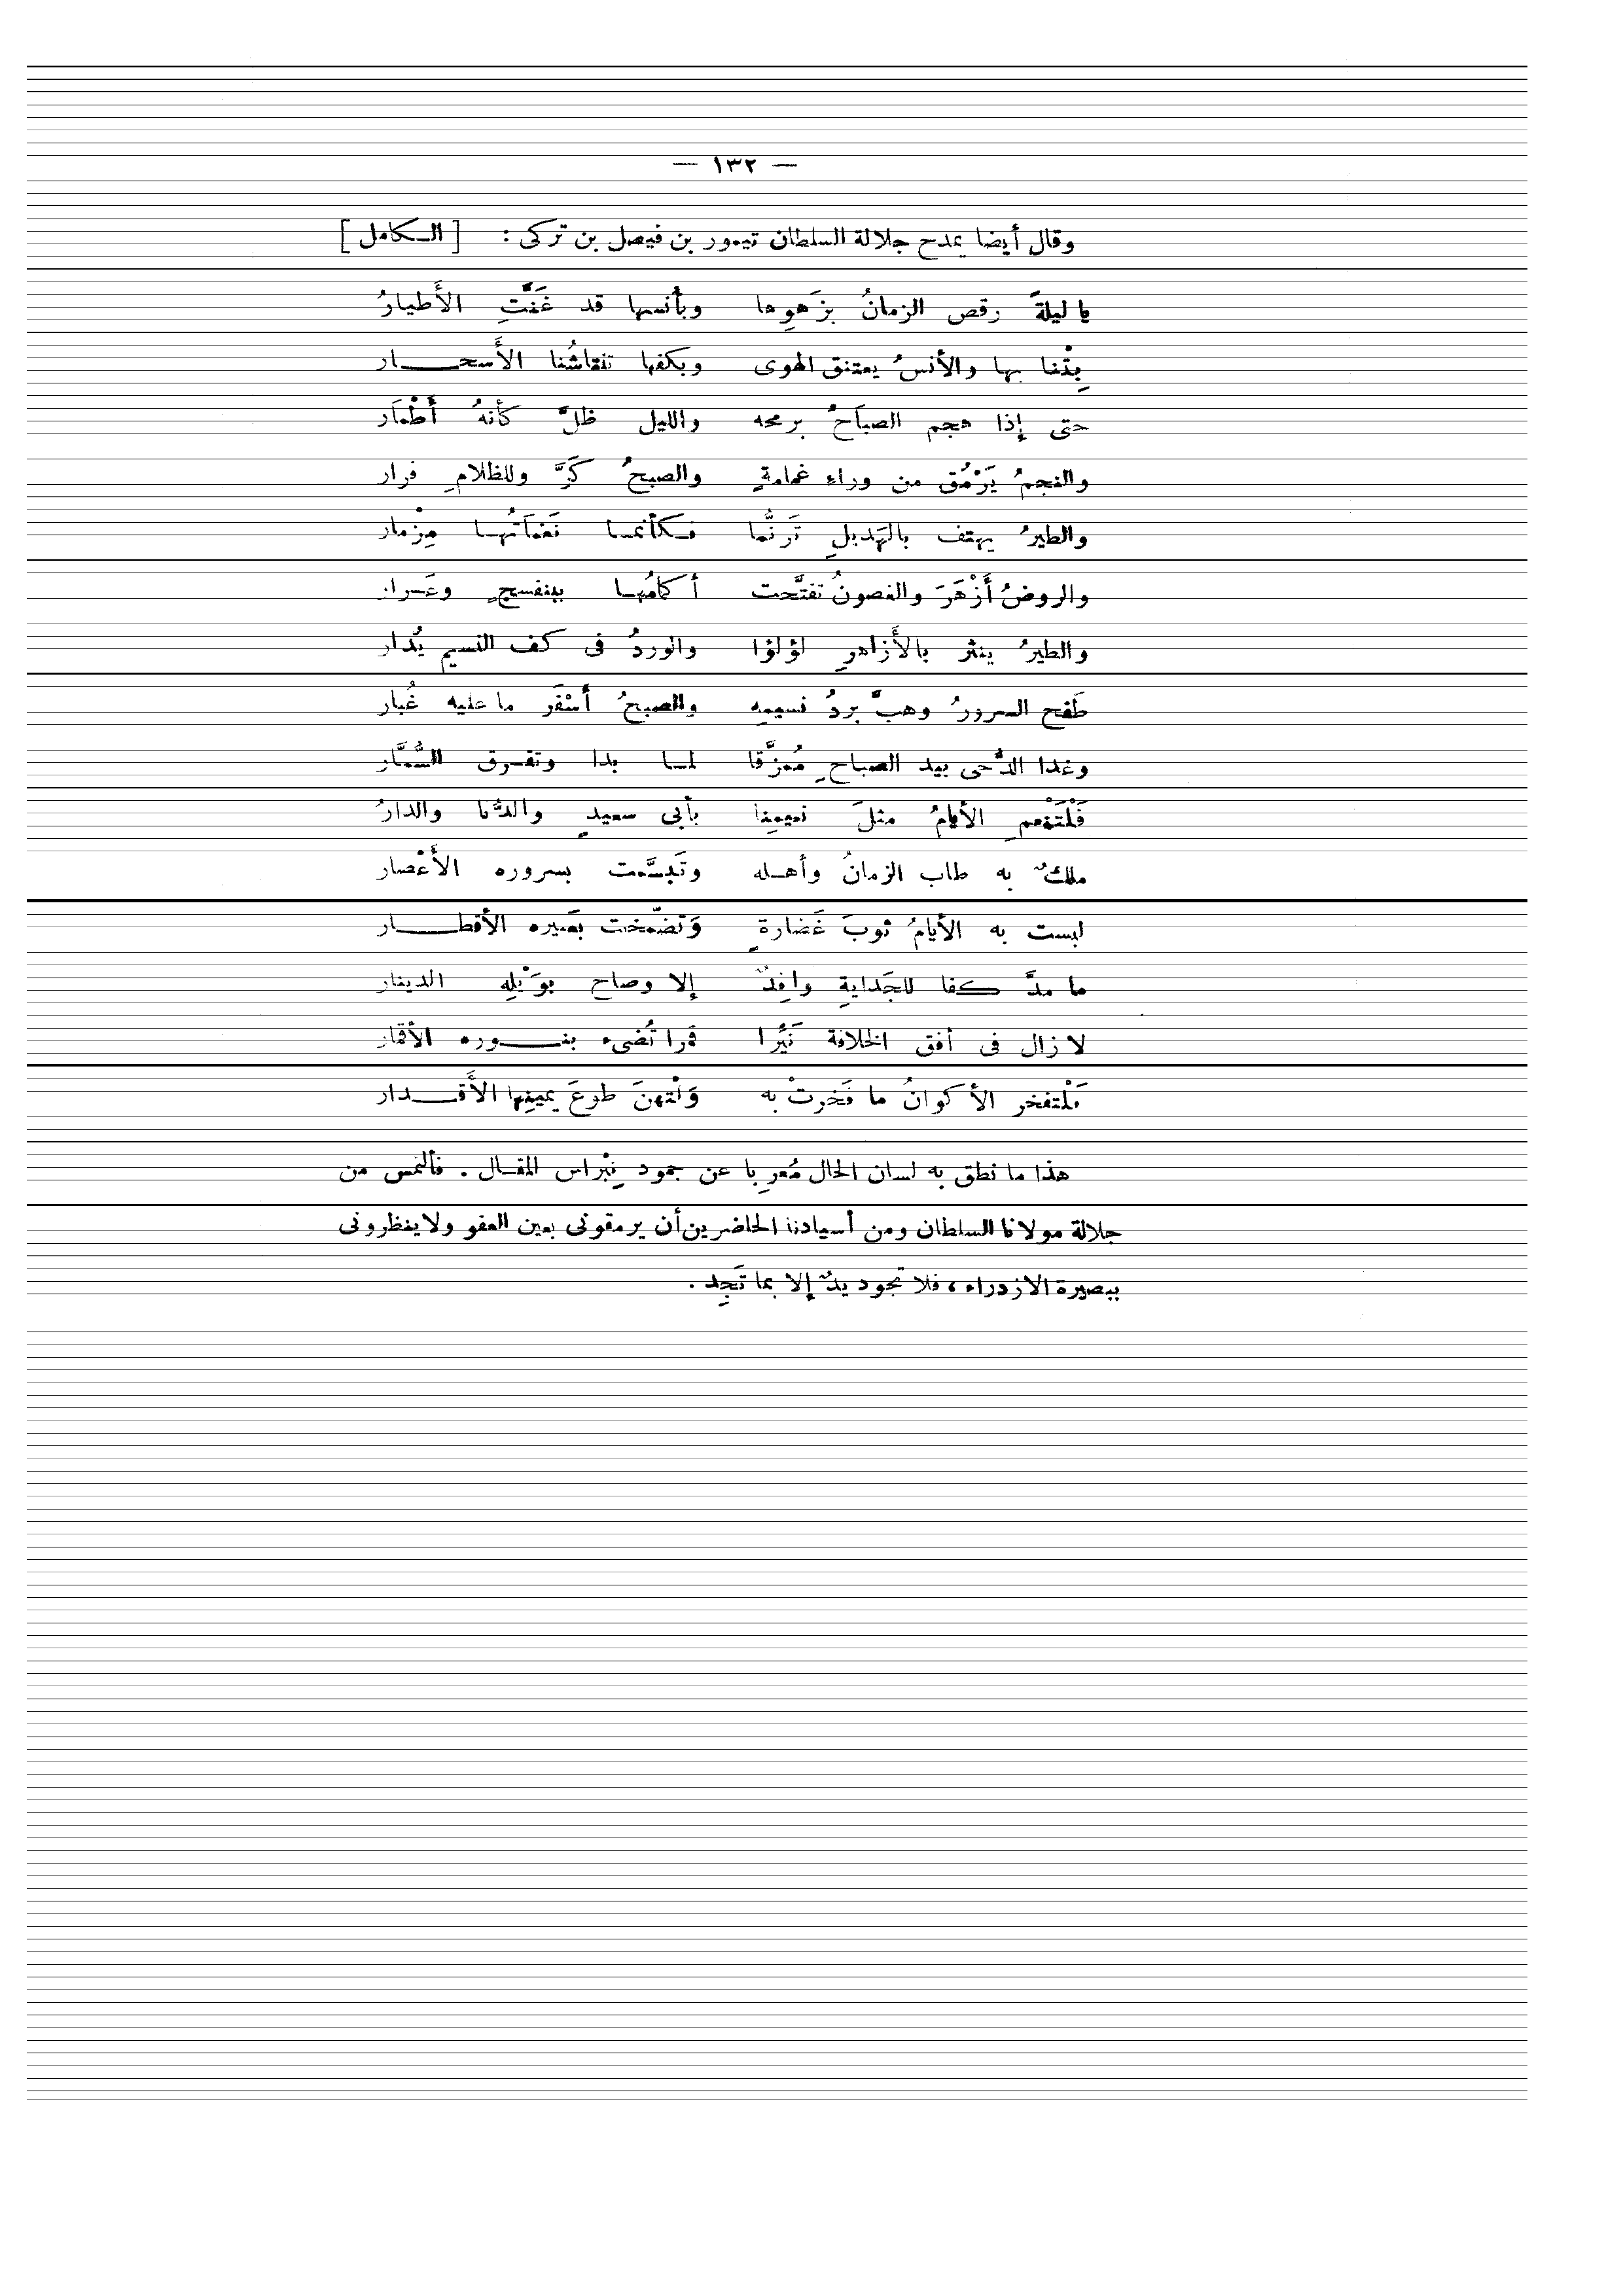 — ١٣٢ —
وقال أيضا يمدح جلالة السلطان تيمور بن فيصل بن تركى : [ الـكامل ]
يا ليلةً رقص الزمانُ بزَهوِها وبأنسها قد غَنَّتِ الأَطيارُ
بِتْنا بها والأنسُ يعتنق الهوى وبكفها تنتاشُنا الأَسحـــار
حتى إذا هجم الصباحُ برمحه والليل ظلَّ كأنهُ أَطْمَار
والنجمُ يَرْمُق من وراء غمامةٍ والصبحُ كَرَّ وللظلامِ فرار
والطيرُ يهتف بالهَديلِ تَرنُّما فـكأنمـا نَغمَاتُهـا مِزْمار
والروضُ أَزْهَرَ والغصونُ تفتَّحت أكمامُهـا ببنفسجٍ وعَـرار
والطيرُ ينثر بالأَزاهرِ لؤلؤا والوردُ فى كف النسيم يُدار
طَفح السرورُ وهبَّ بردُ نسيمِه والصبحُ أَسْفَر ما عليه غُبار
وغدا الدُّجى بيد الصباحِ مُمزَّقا لمـا بدا وتفـرق السُّمَّار
فَلْتَنْعمِ الأيامُ مثلَ نعيمِنا بأبى سعيدٍ والدُّنا والدارُ
ملكٌ به طاب الزمانُ وأهـله وتَبسَّمت بسروره الأَعْصار
لبست به الأيامُ ثوبَ غَضارةٍ وَتضمَّخت بعَبيره الأقطـــار
ما مدَّ كفا للجَدايةِ وافِدٌ إلا وصاح بوَيْلِه الدينار
لا زال فى أفق الخلافة نَيِّرا قمرا تُضىء بنـــوره الأقمار
فَلْتفخر الأكوانُ ما فَخرتْ به وَلْتهنَ طوعَ يمينِها الأَقــدار
هذا ما نطق به لسان الحال مُعرِبا عن جمود نِبْراس المقـال . فألتمس من
جلالة مولانا السلطان ومن أسيادنا الحاضرين أن يرمقونى بعين العفو ولا ينظرونى
ببصيرة الازدراء ، فلا تجود يدٌ إلا بما تَجِد .